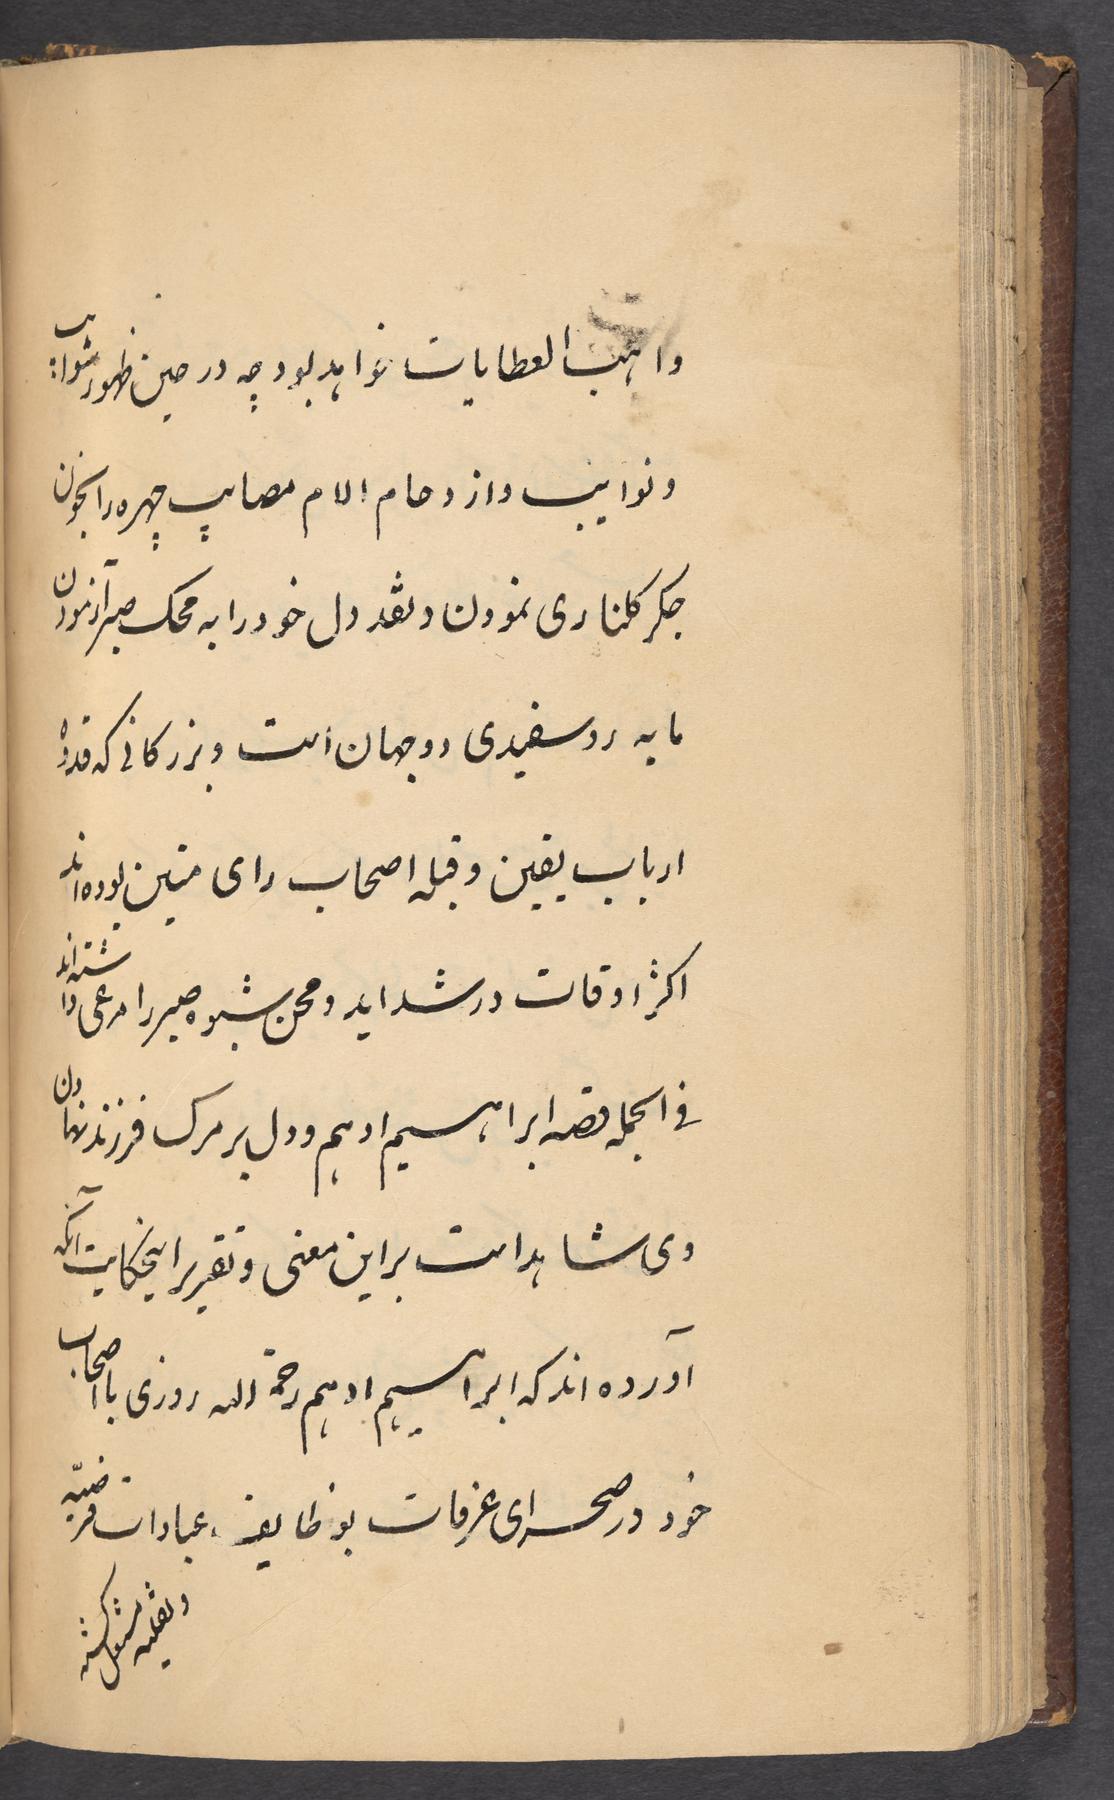 واهب العطایات خواهد بود چه در حین ظهور شوایب
و نوایب و ازدحام الام مصایب چهره را بخون
جکر کلناری نمودن و نقد دل خود را به محک صبر آزمودن
مایه روسفیدی دو جهان است و بزرکانی که قدوه
ارباب یقین و قبله اصحاب رای متین بوده اند
اکثر اوقات در شداید و محن شیوه صبر را مرعی داشته اند
فی الجمله قصه ابراهیم ادهم و دل بر مرک فرزند نهادن
وی شاهد است بر این معنی و تقریر اینحکایت آنکه
آورده اند که ابراهیم ادهم رحمة الله روزی با اصحاب
خود در صحرای عرفات بوظایف عبادات فرضیه
و نفلیه مشغول کشته